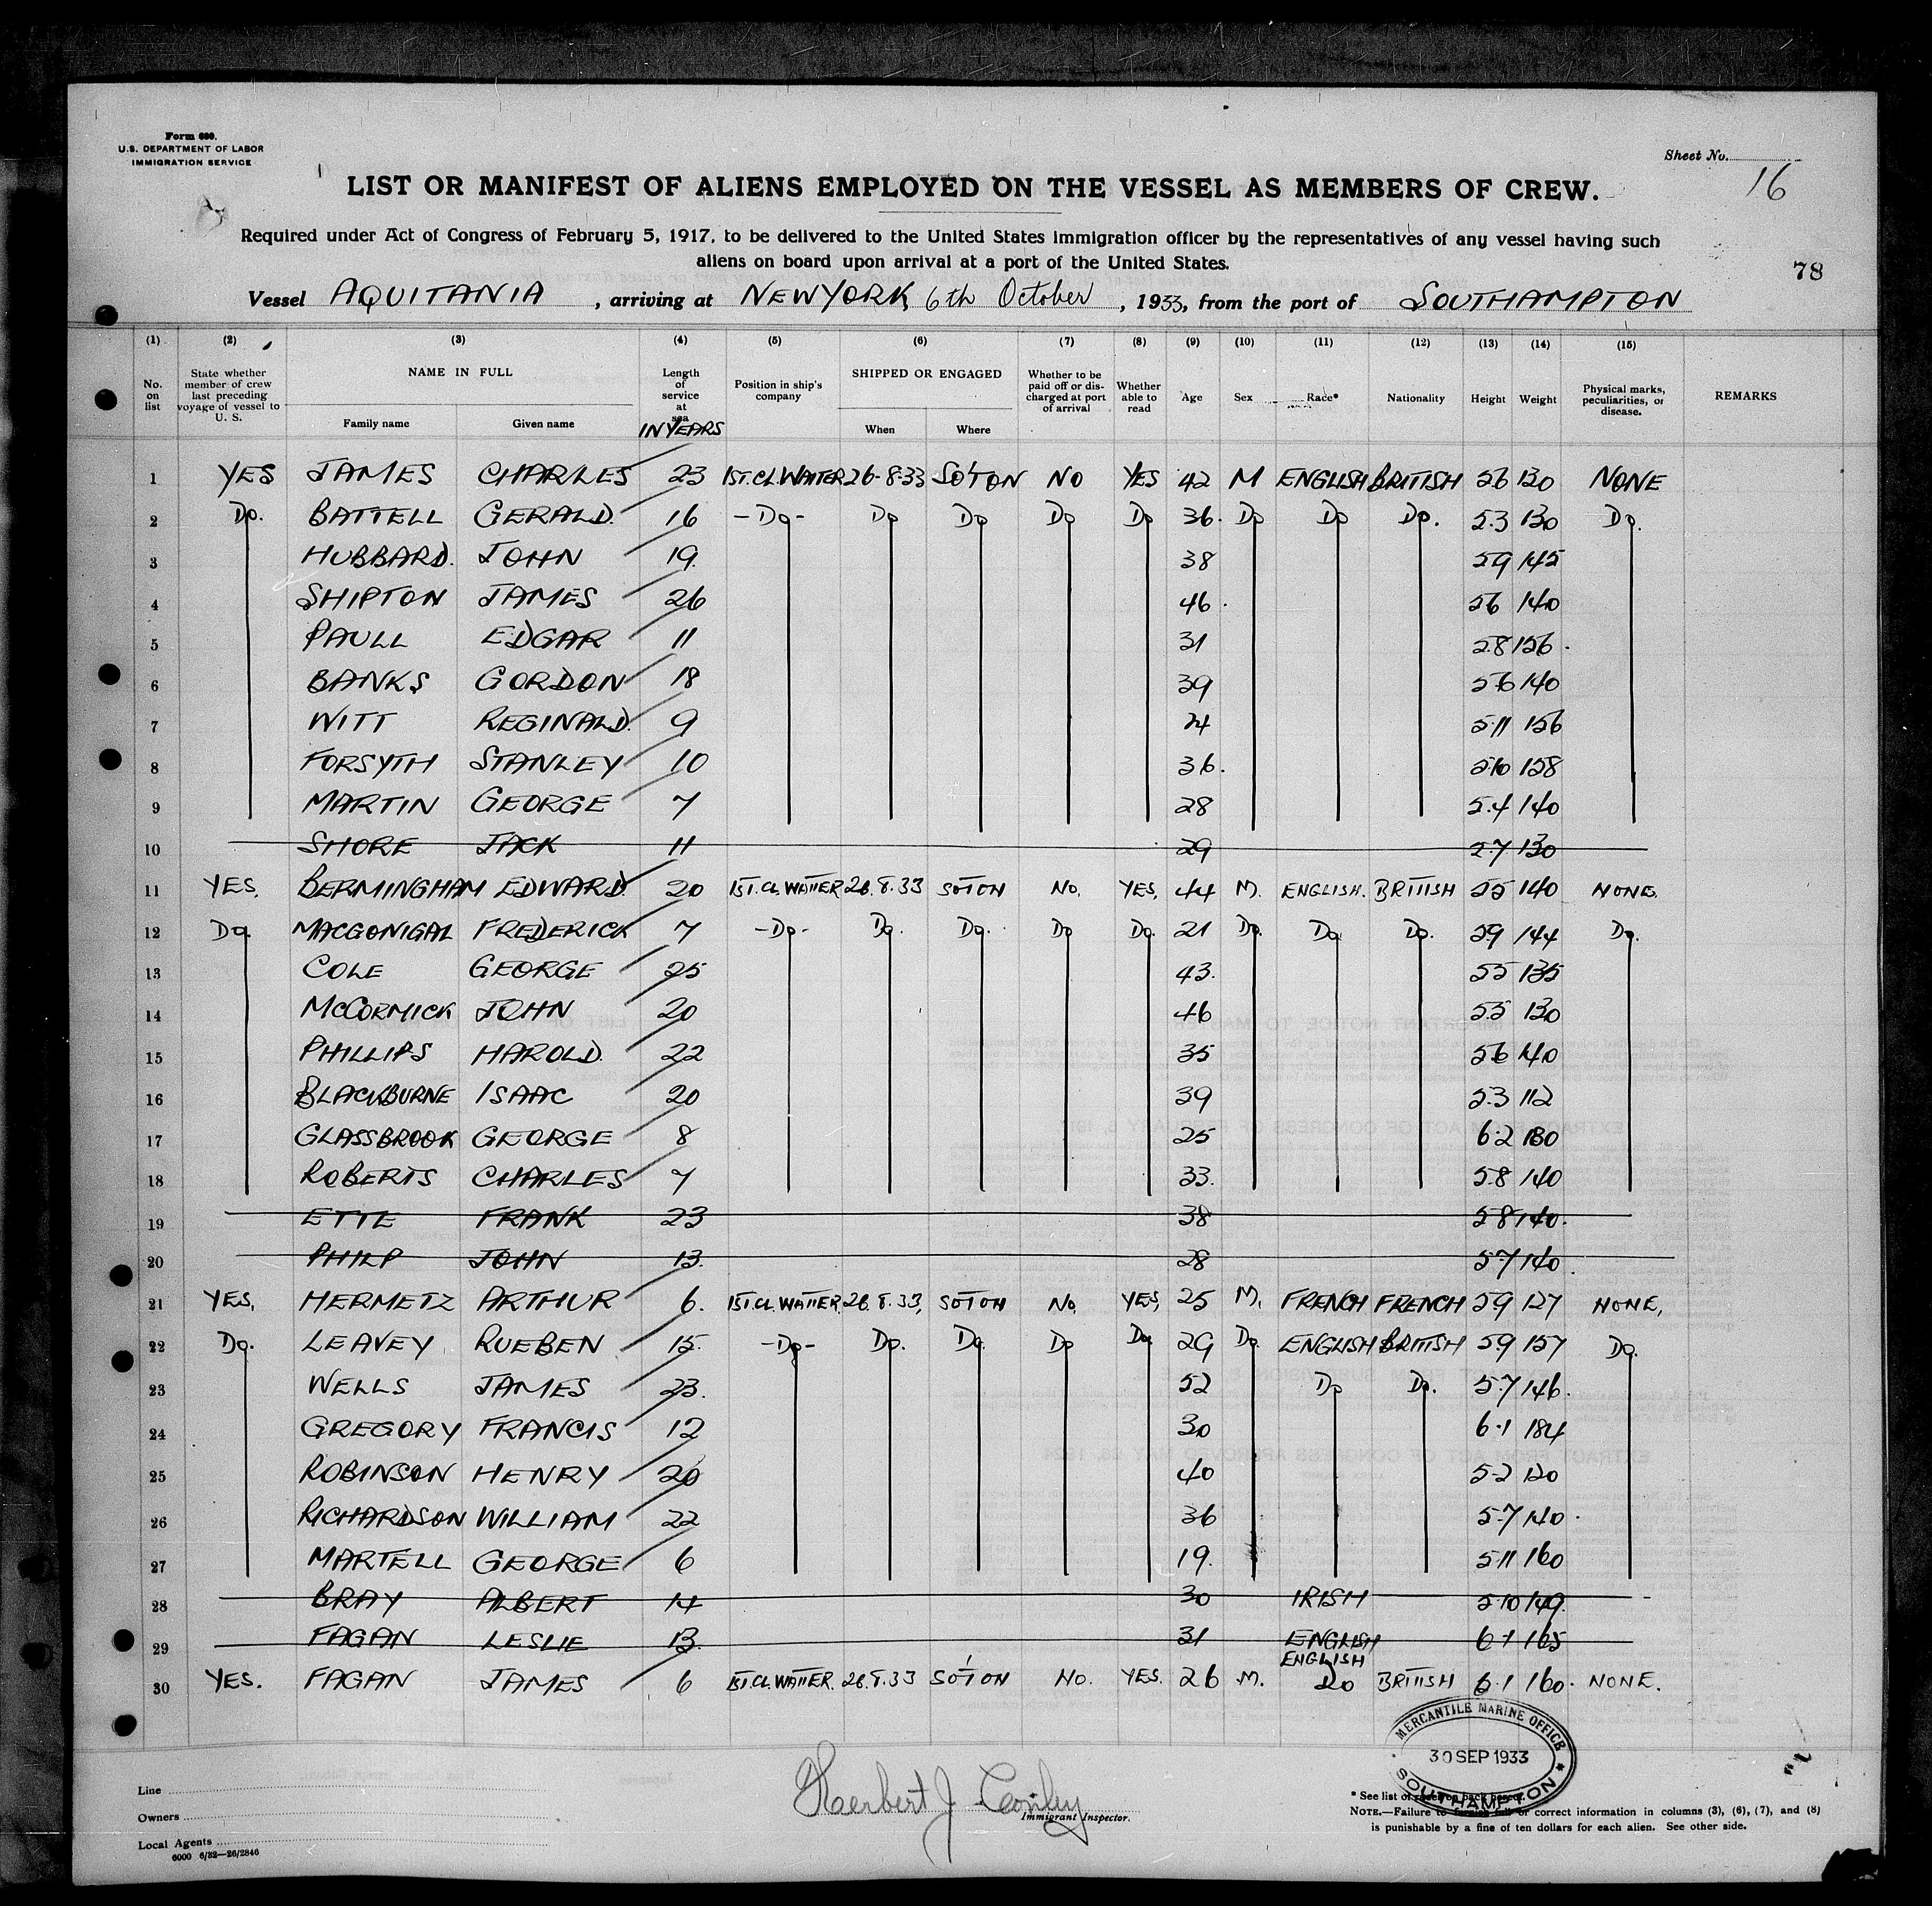 Form 680.
U.S. DEPARTMENT OF LABOR
IMMIGRATION SERVICE
Sheet No. 16
LIST OR MANIFEST OF ALIENS EMPLOYED ON THE VESSEL AS MEMBERS OF CREW.
Required under Act of Congress of February 5, 1917, to be delivered to the United States immigration officer by the representatives of any vessel having such
aliens on board upon arrival at a port of the United States.
78
Vessel AQUITANIA, arriving at NEW YORK, 6th October, 1933, from the port of SOUTHAMPTON
(1) (2) (3) (4) (5) (6) (7) (8) (9) (10) (11) (12) (13) (14) (15)
No. on list State whether member of crew last preceding voyage of vessel to U. S. NAME IN FULL Family name Given name Length of service at sea IN YEARS Position in ship's company SHIPPED OR ENGAGED When Where Whether to be paid off or discharged at port of arrival Whether able to read Age Sex Race* Nationality Height Weight Physical marks, peculiarities, or disease. REMARKS
1 YES JAMES CHARLES 23 1ST.CL.WAITER 26-8-33 SO'TON NO YES 42 M ENGLISH BRITISH 56 130 NONE
2 Do. BATTELL GERALD. 16 -Do- Do Do Do Do 36. Do Do Do. 5.3 130 Do.
3 HUBBARD. JOHN 19. 38 59 145
4 SHIPTON JAMES 26 46. 56 140
5 PAULL EDGAR 11 31 5.8 156.
6 BANKS GORDON 18 39 56 140
7 WITT REGINALD. 9 24 5.11 156
8 FORSYTH STANLEY 10 36. 5.10 158
9 MARTIN GEORGE 7 28 5.4 140
10 SHORE JACK 11 29 5.7 130
11 YES. BERMINGHAM EDWARD. 20 1ST.CL.WAITER 26.8.33 SOTON No. YES. 44 M. ENGLISH. BRITISH 55 140 NONE.
12 Do MACGONIGAL FREDERICK 7 -Do- Do. Do. Do Do. 21 Do. Do Do. 59 144 Do.
13 COLE GEORGE 25 43. 55 135
14 McCORMICK JOHN 20 46 5.5 130
15 PHILLIPS HAROLD. 22 35 56 140
16 BLACKBURNE ISAAC 20 39 5.3 112
17 GLASSBROOK GEORGE 8 25 6.2 180
18 ROBERTS CHARLES 7 33. 5.8 140
19 ETTE FRANK 23 38 58 140.
20 PHILP JOHN 13. 28 57 140.
21 YES. HERMETZ ARTHUR 6. 1ST.CL.WAITER 26.8.33, SOTON No. YES, 25 M. FRENCH FRENCH 5.9 127 NONE,
22 Do. LEAVEY RUEBEN 15. -Do- Do. Do. Do Do 29 Do. ENGLISH BRITISH 59 157 Do.
23 WELLS JAMES 23. 52 Do Do. 5.7 146.
24 GREGORY FRANCIS 12 30 6.1 184
25 ROBINSON HENRY 20 40 5-2 120
26 RICHARDSON WILLIAM 22 36 5-7 140.
27 MARTELL GEORGE 6 19. 5.11 160
28 BRAY ALBERT 14 30 IRISH 5.10 149.
29 FAGAN LESLIE 13. 31 ENGLISH 6.1 165
ENGLISH
30 YES. FAGAN JAMES 6 1ST.CL.WAITER. 26.8.33 SO'TON No. YES. 26 M. Do BRITISH 6.1 160. NONE.
MERCANTILE MARINE OFFICE
30 SEP 1933
SOUTHAMPTON
Line
Owners
Local Agents
6000 6/32—26/2846
Herbert J. Conley
Immigrant Inspector.
* See list of races on back hereof.
NOTE.—Failure to furnish full or correct information in columns (3), (6), (7), and (8)
is punishable by a fine of ten dollars for each alien. See other side.